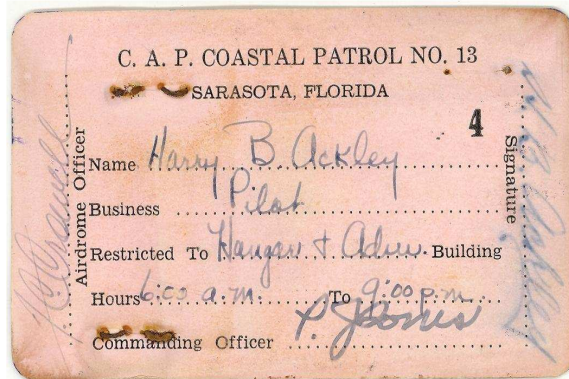 C. A. P. COASTAL PATROL NO. 13
SARASOTA, FLORIDA
4
Name Harry B. Ackley
Business Pilot
Restricted To Hangar & Admn. Building
Hours 6:00 a.m. To 9:00 p.m.
Commanding Officer
Airdrome Officer
Signature H B Ackley